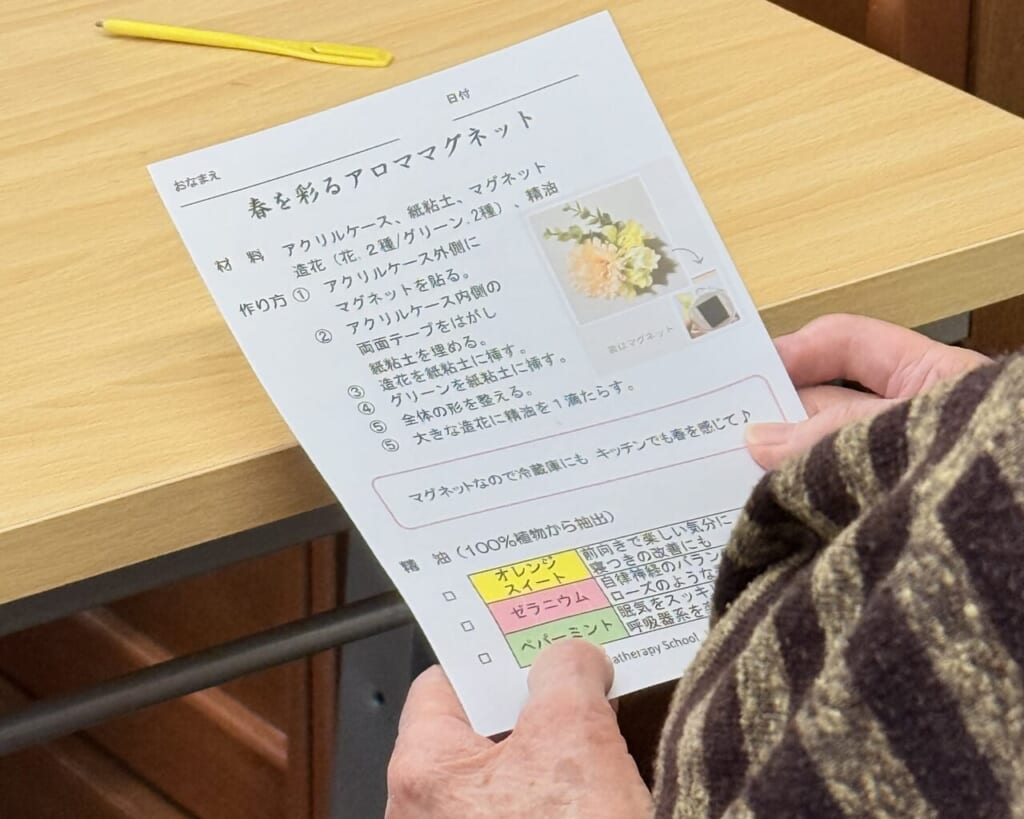 日付
おなまえ
春を彩るアロママグネット
材　料　アクリルケース、紙粘土、マグネット
造花（花,２種/グリーン,２種）、精油
作り方 ① アクリルケース外側に
マグネットを貼る。
② アクリルケース内側の
両面テープをはがし
紙粘土を埋める。
③ 造花を紙粘土に挿す。
④ グリーンを紙粘土に挿す。
⑤ 全体の形を整える。
⑤ 大きな造花に精油を１滴たらす。
裏はマグネット
マグネットなので冷蔵庫にも キッチンでも春を感じて♪
精　油（100％植物から抽出）
□ オレンジスイート 前向きで楽しい気分に
寝つきの改善にも
□ ゼラニウム 自律神経のバラン
ローズのような
□ ペパーミント 眠気をスッキ
呼吸器系を
atherapy School